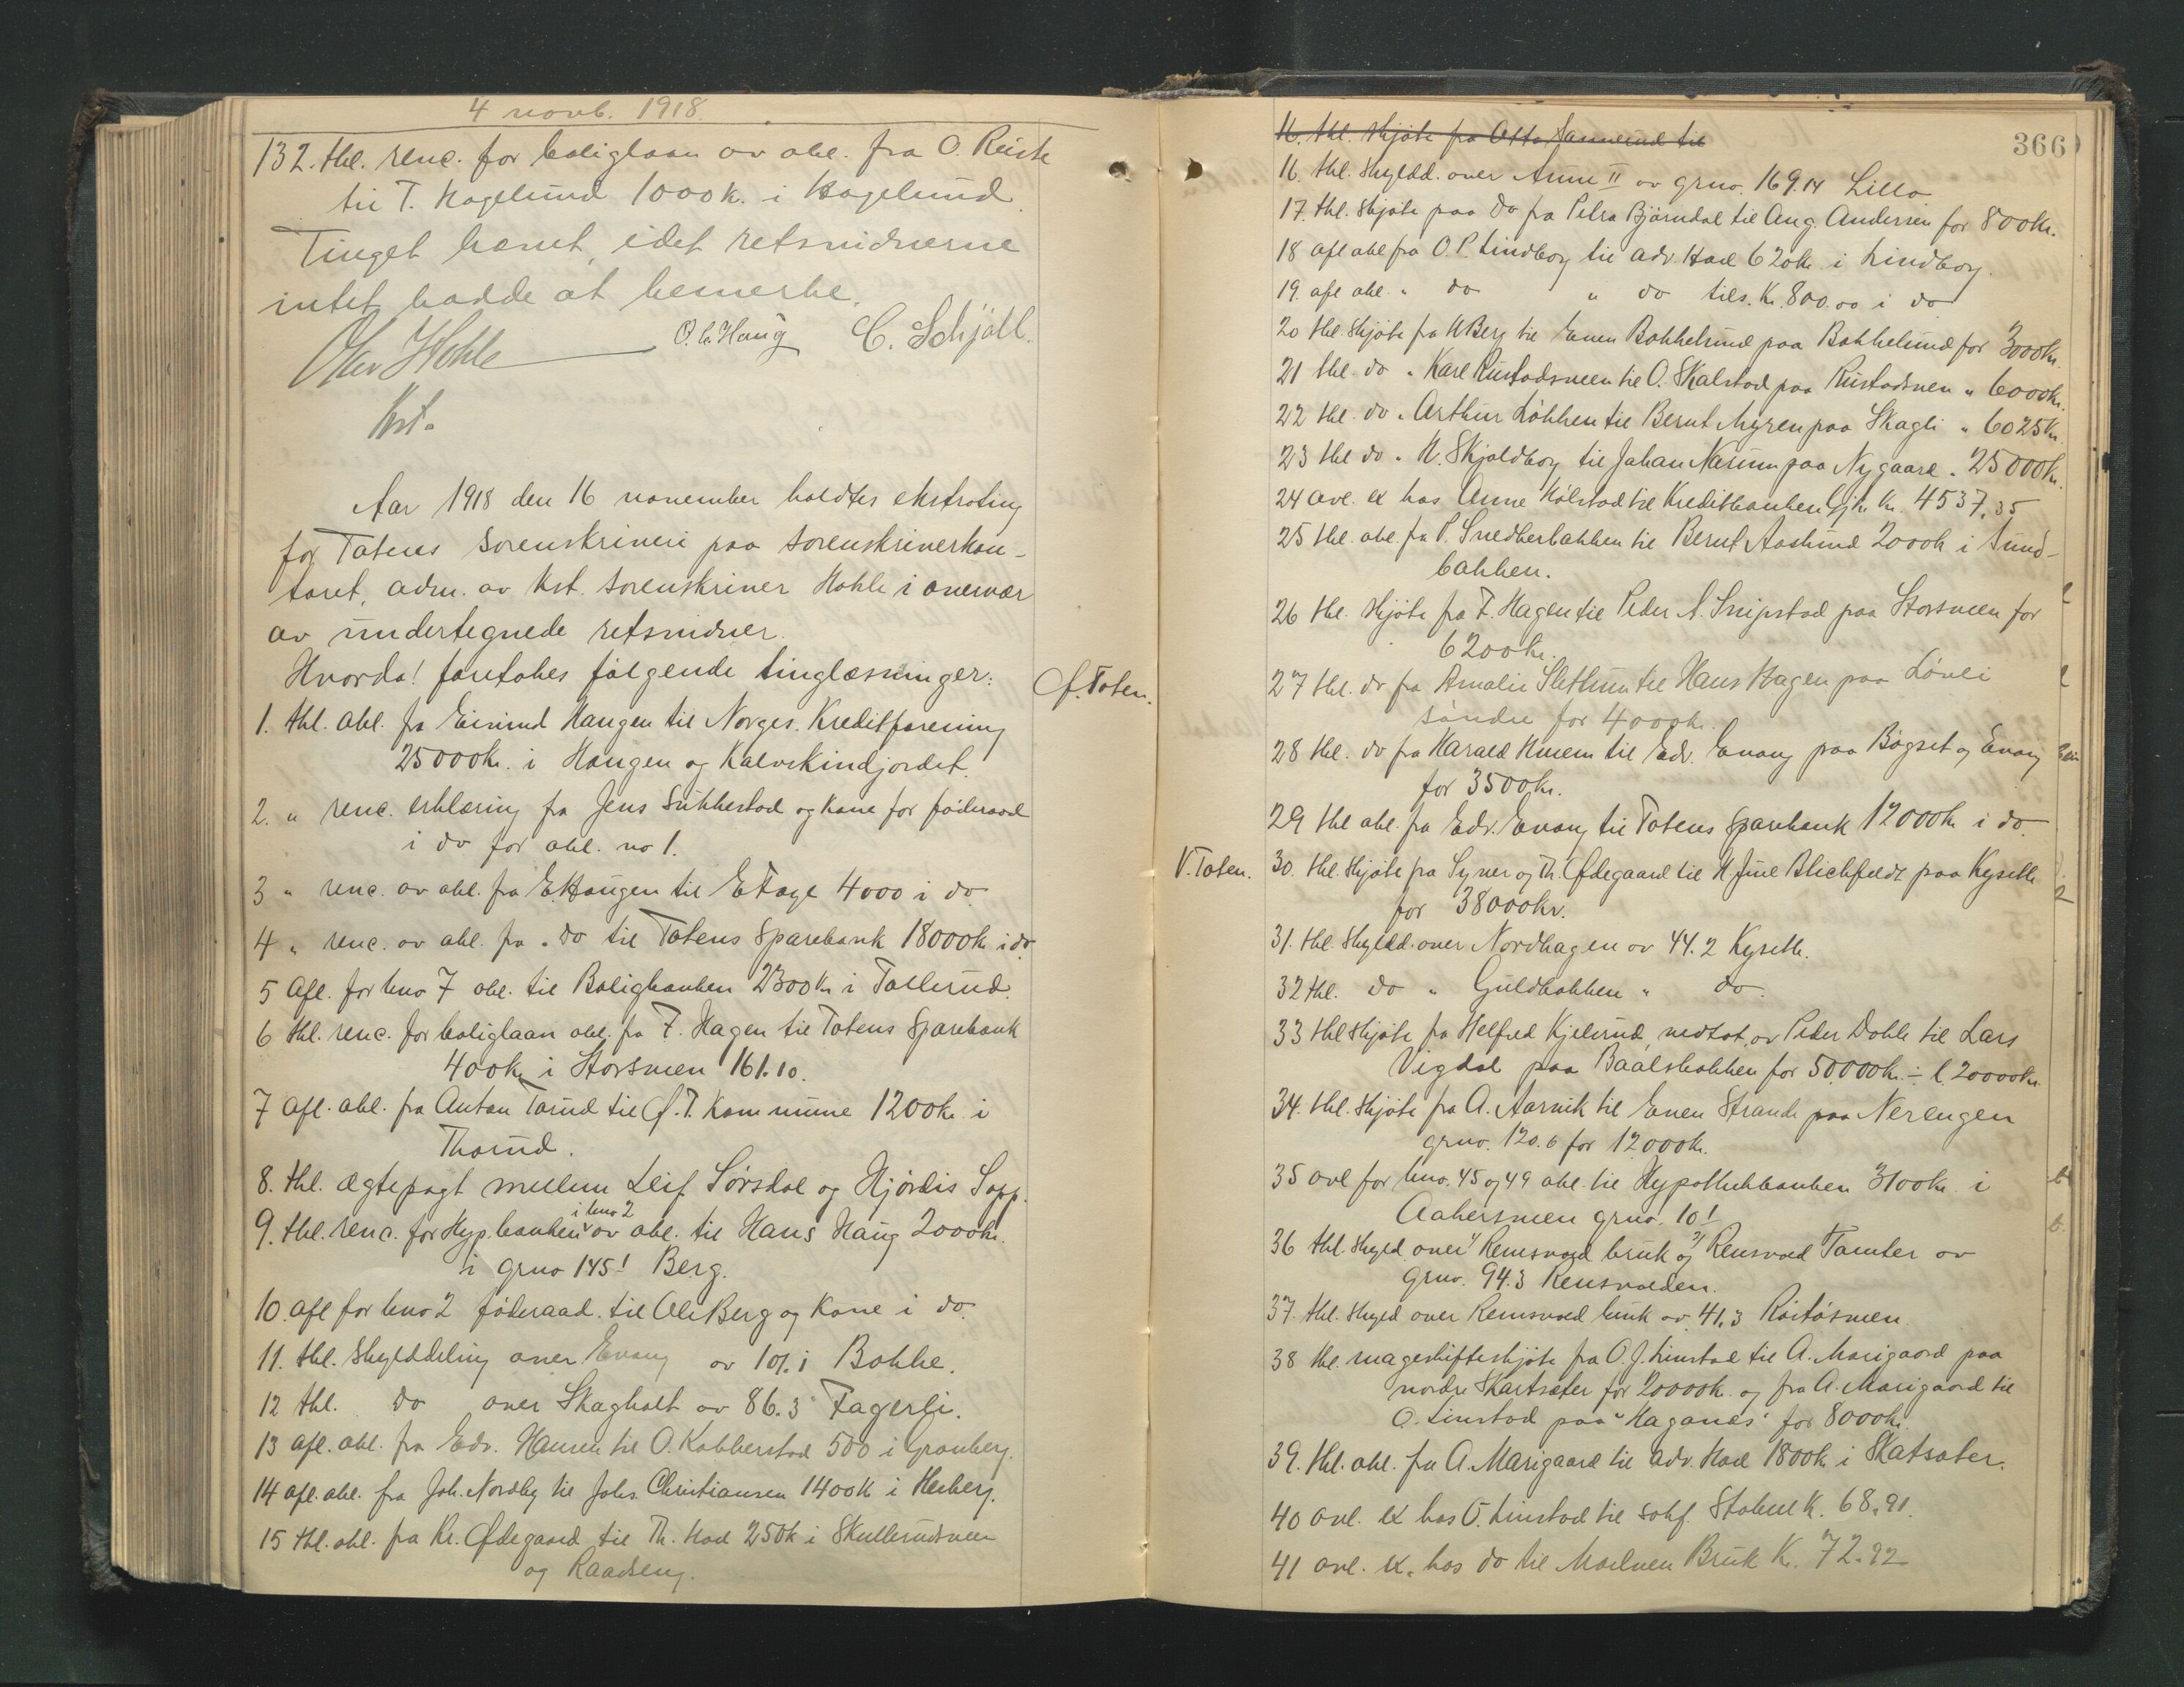 4 novb. 1918.
132. thl. renc. for boliglaan av obl. fra O. Ruste
til T. Hagelund 1000k. i Hagelund.
Tinget hævet, idet retsvidnerne
intet hadde at bemerke.
O. C. Haug C. Schjöll.
Olav Hohle
kst.
Aar 1918 den 16 november holdtes ekstrating
for Totens sorenskriveri paa sorenskriverkon-
toret, adm. av kst. sorenskriver Hohle i overvær
av undertegnede retsvidner.
Hvorda! foretokes følgende tinglæsninger:
Ø. Toten.
1. thl. obl. fr Eivind Haugen til Norges Kreditforening
25000kr. i Haugen og Kalvskindjordet.
2. " renc. erklæring fra Jens Sukkestad og kone for föderaad
i do for obl. no 1.
3 " renc. av obl. fra E. Haugen til E Fage 4000 i do.
4 " renc. av obl. fra " do til Totens Sparebank 18000k. i do.
5 Afl. for bno 7 obl. til Boligbanken 2300kr i Tollerud.
6 thl. renc. for boliglaan obl. fra F. Hagen til Totens Sparebank
400kr. i Storsveen 161.10.
7 Afl. obl. fra Anton Torud til Ø. T. Kommune 1200kr. i
Thorud.
8. thl. ægtepagt mellem Leif Sörsdal og Hjördis Sopp.
i bno 2
9. thl. renc. for Hyp.banken av obl. til Hans Haug 2000kr.
i grno 145.1 Berg.
10. afl for bno 2 föderaad til Ole Berg og kone i do.
11. thl. skylddeling over Evang av 101.1 Bokke.
12 thl. do over Skagholt av 86.3 Fagerli.
13 afl. obl. fra Edv. Hansen til O. Kobberstad 500 i Granberg.
14 afl. obl. fra Joh. Nordby til Johs. Christiansen 1400k i Heiberg.
15 thl. obl. fra Kr. Ødegaard til Th. Hoel 250k i Skullerudsveen
og Raadseng.
366
16. thl. skjöte fra Otto Sannerud til
16. thl. skyldd. over Anne II av grno. 169.14 Lillo
17. thl. skjöte paa do fra Petra Bjørndal til Aug. Andersen for 800kr.
18 afl obl fra O. P. Lindborg til adv. Hoel 620kr i Lindborg.
19. afl obl. " do " do tils. Kr. 800.00 i do
20 thl. skjöte fra H Berg til Even Bokkelund paa Bokkelund for 3000kr.
21 thl. do " Karl Rustadsveen til O. Skalstad paa Rustadsveen " 6000kr.
22 thl. do " Arthur Løkken til Bernt Myren paa Skagli " 6025kr.
23 thl do " N. Skjoldborg til Johan Narum paa Nygaard " 25000kr.
24 avl. ex hos Arne Kolstad til Kreditbanken Gjk kr. 4537,35
25 thl. obl. fra P. Snedkerbakken til Bernt Aaslund 2000k i Sund-
bakken.
26 thl. skjöte fra F. Hagen til Peder A. Snipstad paa Storsveen for
6200kr.
27 thl. do fra Amalie Slettum til Hans Hagen paa Lövli
söndre for 4000kr.
28 thl. do fra Harald Huem til Edv. Evang paa Bøgset og Evang
for 3500kr.
29 thl obl. fra Edv. Evang til Totens Sparebank 12000k i do.
V. Toten.
30. thl. skjöte fra Syver og Th. Ødegaard til H. Juel Blichfeldt paa Kyseth
for 38000kr.
31. thl. skyldd. over Nordhagen av 44.2 Kyseth.
32 thl. do " Guldbakken " do.
33 thl skjöte fra Helfred Kjelsrud, vedtat. av Peder Dahle til Lars
Vigdal paa Baalsbakken for 50000kr. ÷ l. 20000kr.
34. thl. skjöte fra A. Aarvik til Even Strande paa Nerengen
grno. 120.6 for 12000k.
35 avl for bno. 45 og 49 obl. til Hypothekbanken 3100kr. i
Aakersveen grno. 10.1
36 thl. skyld over 1/ Remsvold bruk og 2/ Remsvold Tomter av
grno. 94.3 Remsvolden.
37. thl. skyld over Remsvold bruk av 41.3 Röstösveen.
38 thl. mageskifteskjöte fra O. J. Linstad til A. Marigaard paa
nordre Skartsæter for 20000k. og fra A. Marigaard til
O. Linstad paa "Haganes" for 8000kr.
39. thl. obl. fra A. Marigaard til adv. Hoel 1800k. i Skatsæter.
40 avl. ex hos O. Linstad til sakf. Stabell K. 68,91.
41 avl. ex. hos do til Moelven Bruk K. 72.92